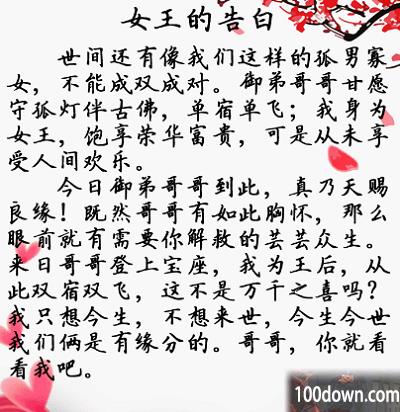 女王的告白
世间还有像我们这样的孤男寡
女，不能成双成对。御弟哥哥甘愿
守孤灯伴古佛，单宿单飞；我身为
女王，饱享荣华富贵，可是从未享
受人间欢乐。
今日御弟哥哥到此，真乃天赐
良缘！既然哥哥有如此胸怀，那么
眼前就有需要你解救的芸芸众生。
来日哥哥登上宝座，我为王后，从
此双宿双飞，这不是万千之喜吗？
我只想今生，不想来世，今生今世
我们俩是有缘分的。哥哥，你就看
看我吧。
100down.com